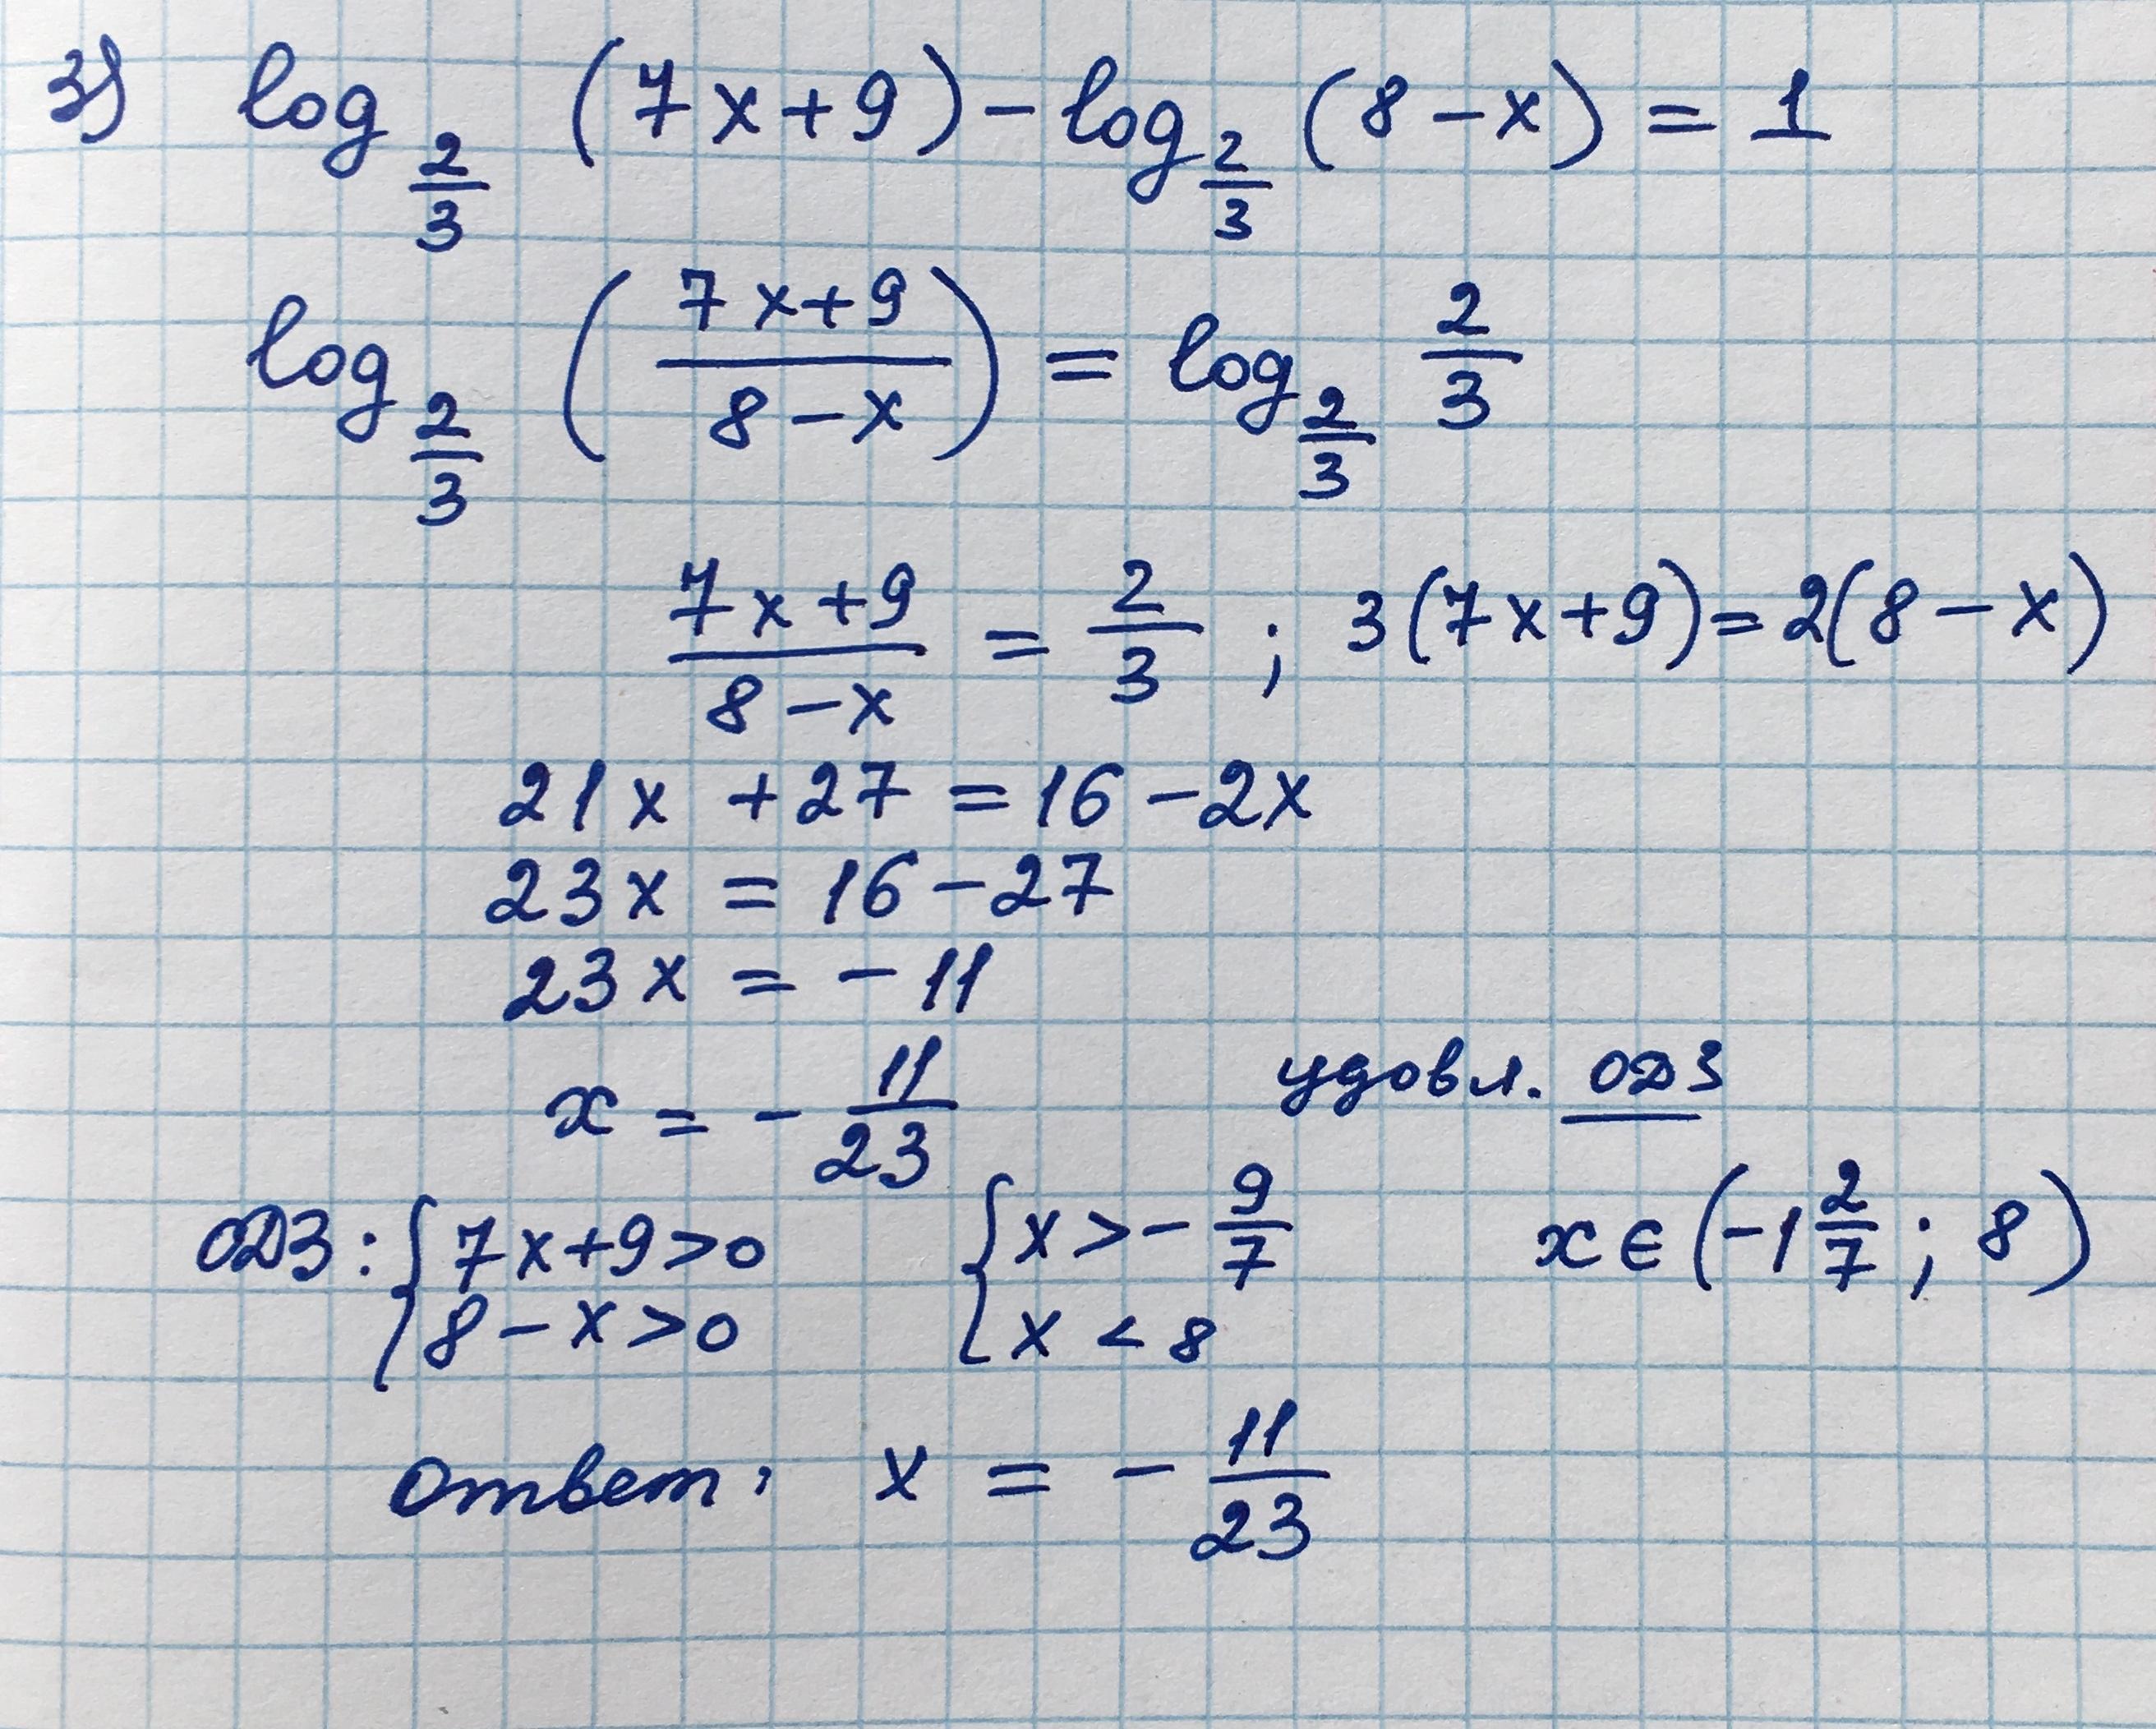 3) log_{2/3} (7x+9) - log_{2/3} (8-x) = 1
log_{2/3} ((7x+9)/(8-x)) = log_{2/3} 2/3
(7x+9)/(8-x) = 2/3 ; 3(7x+9)=2(8-x)
21x +27 = 16-2x
23x = 16-27
23x = -11
x = - 11/23 удовл. ОДЗ
ОДЗ: { 7x+9>0 { x>- 9/7 x∈(-1 2/7 ; 8)
8-x>0 x<8
Ответ: x = - 11/23